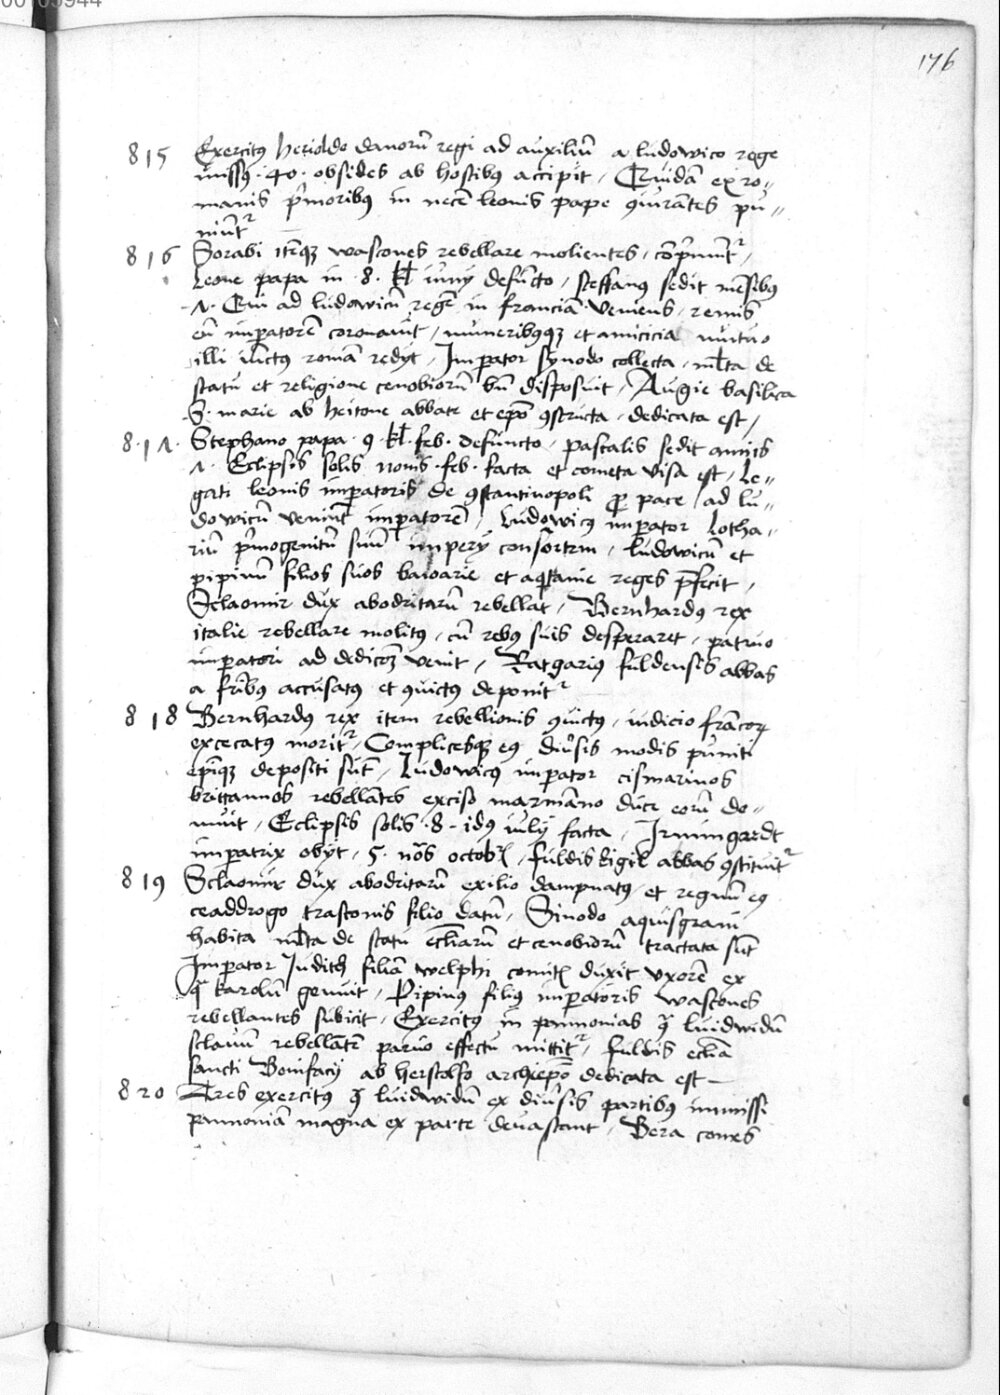 00103944
176
815 Exercitꝰ herioldo danorū regi ad auxiliū a ludowico rege
missꝰ · 40 · obsides ab hostibꝰ accipit / Quidā ex ro„
manis p̄moribꝰ in necē leonis pape ꝯiurātes pu„
niūtᷣ
816 Sorabi itēqꝫ wascones rebellare molientes / cōp̄muntᷣ /
Leone papa in · 8 · kł iuny defūcto / steffanus sedit mēsibꝰ
·Λ· Qui ad ludowicū regē in franciā veniens / remis
eū imꝑatorē coronauit / muneribꝰqꝫ et amicicia mutuo
illi iūctus romā redyt / Imꝑator synodo collecta / mlta de
statu et religione cenobiorū bn̄ disposuit / Augie basilica
S· marie ab heitone abbate et ep̄o ꝯstructa / dedicata est /
8·1Λ· Stephano papa · 9 kł feb· defuncto / pascalis sedit annis
Λ· Eclipsis solis nonis · feb · facta et cometa visa est / Le„
gati leonis imꝑatoris de ꝯstantinopoli ꝓ pace ad lu„
dowicū veniūt imꝑatorē / Ludowicꝰ imꝑator lotha„
riū p̄mogenitū suū impery consortem / ludowicū et
pipinū filios suos baioarie et aqͣtanie reges p̄fecit /
Sclaomir dux abodritarū rebellat / Bernhardꝰ rex
italie rebellare molitꝰ / cū rebꝰ suis desperaret / patruo
imꝑatori ad dedicōꝫ venit / Ratgariꝰ fuldensis abbas
a fr̄ibꝰ accusatꝰ et ꝯuictꝰ deponitᷣ
818 Bernhardꝰ rex item rebellionis ꝯuictꝰ / iudicio francoꝝ
excecatꝰ moritᷣ / Complicesqꝫ eꝰ diūsis modis puniti
epīqꝫ depositi sūt / Ludowicꝰ imꝑator cismarinos
brittannos rebellātes exciso marmāno duce eorū do„
muit / Eclipsis solis · 8 · idꝰ iuly facta / Irmingardt
imꝑatrix obyt / 5 · nōs octobꝭ / fuldis Eigil abbas ꝯstituitᷣ
819 Sclaomir dux abodritarū exilio dampnatꝰ / et regnū eꝰ
ceaddrogo trasconis filio datū / Sinodo aquisgrani
habita mlta de statu eccłiarū et cenobiorū tractata sūt
Imꝑator Judith filiā welphi comitꝭ duxit vxorē ex
qͣ karolū genuit / Pipinꝰ filiꝰ imꝑatoris wascones
rebellantes subicit / Exercitꝰ in pannonias ꝯͣ luidwidū
sclauū rebellātē paruo effectu mittitᷣ / fuldis eccłia
sancti Bonifacij ab herstolfo archiep̄o dedicata est —
820 Tres exercitꝰ ꝯͣ luidwidū ex diūsis partibꝰ immissi
pannoniā magna ex parte deuastant / Bera comes